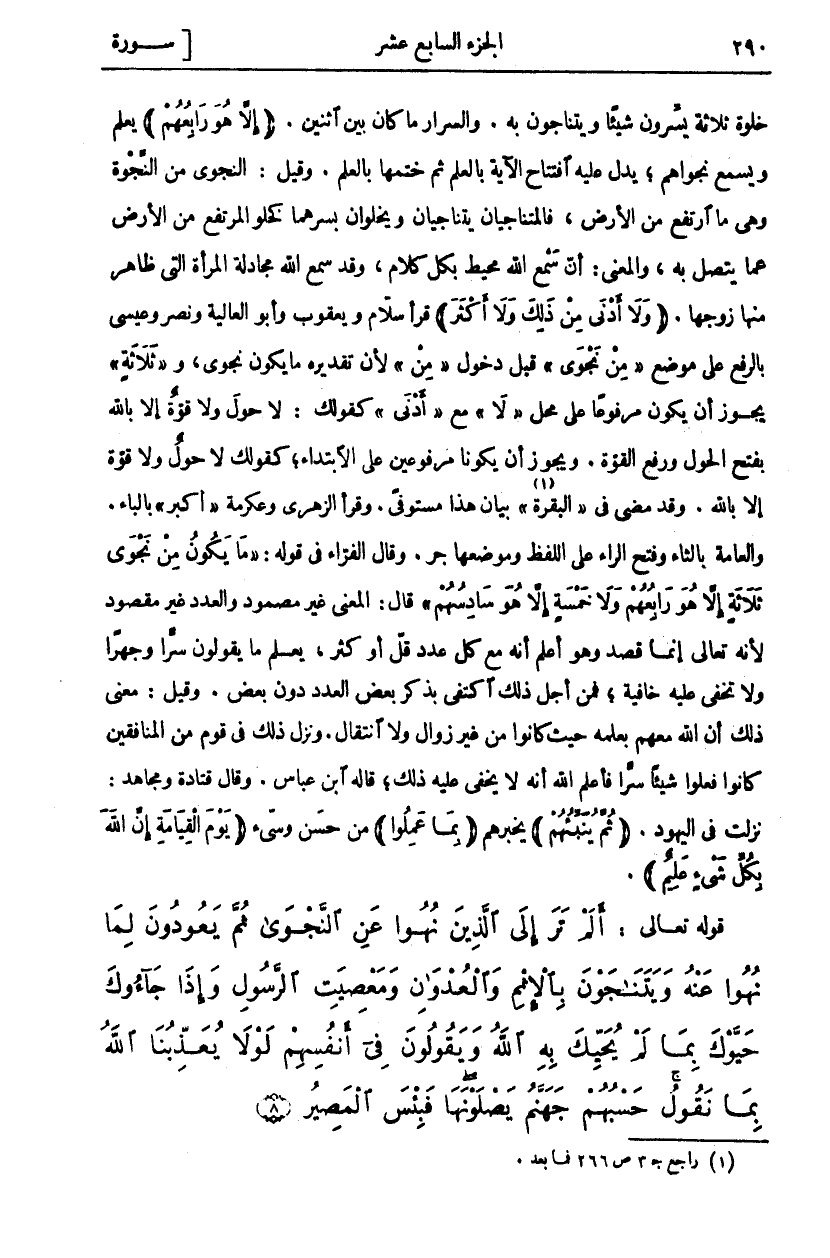 ٢٩٠ الجزء السابع عشر [ ســورة
خلوة ثلاثة يسّرون شيئا ويتناجون به . والسرار ما كان بين ٱثنين . ﴿ إِلَّا هُوَ رَابِعُهُمْ ﴾ يعلم
ويسمع نجواهم ؛ يدل عليه ٱفتتاح الآية بالعلم ثم ختمها بالعلم . وقيل : النجوى من النَّجْوة
وهى ما ٱرتفع من الأرض ، فالمتناجيان يتناجيان ويخلوان بسرهما كخلو المرتفع من الأرض
عما يتصل به ، والمعنى : أن سَمْع الله محيط بكل كلام ، وقد سمع الله مجادلة المرأة التى ظاهر
منها زوجها . ﴿ وَلَا أَدْنَى مِنْ ذَلِكَ وَلَا أَكْثَرَ ﴾ قرأ سلّام ويعقوب وأبو العالية ونصر وعيسى
بالرفع على موضع « مِنْ نَجْوَى » قبل دخول « مِنْ » لأن تقديره ما يكون نجوى ، و « ثَلَاثَةٍ »
يجــوز أن يكون مرفوعًا على محل « لَا » مع « أَدْنَى » كقولك : لا حولَ ولا قوّةٌ إلا بالله
بفتح الحول ورفع القوّة . ويجوز أن يكونا مرفوعين على الٱبتداء ؛ كقولك لا حولٌ ولا قوّة
إلا بالله . وقد مضى فى « البقرة (١) » بيان هذا مستوفًى . وقرأ الزهرى وعكرمة « أكبر » بالباء .
والعامة بالثاء وفتح الراء على اللفظ وموضعها جر . وقال الفرّاء فى قوله : « مَا يَكُونُ مِنْ نَجْوَى
ثَلَاثَةٍ إِلَّا هُوَ رَابِعُهُمْ وَلَا خَمْسَةٍ إِلَّا هُوَ سَادِسُهُمْ » قال : المعنى غير مصمود والعدد غير مقصود
لأنه تعالى إنمــا قصد وهو أعلم أنه مع كل عدد قلّ أو كثر ، يعــلم ما يقولون سرًّا وجهرًا
ولا تخفى عليه خافية ؛ فمن أجل ذلك ٱكتفى بذكر بعض العدد دون بعض . وقيل : معنى
ذلك أن الله معهم بعلمه حيث كانوا من غير زوال ولا ٱنتقال . ونزل ذلك فى قوم من المنافقين
كانوا فعلوا شيئًا سرًّا فأعلم الله أنه لا يخفى عليه ذلك ؛ قاله ٱبن عباس . وقال قتادة ومجاهد :
نزلت فى اليهود . ﴿ ثُمَّ يُنَبِّئُهُمْ ﴾ يخبرهم ﴿ بِمَــا عَمِلُوا ﴾ من حسَن وسيّء ﴿ يَوْمَ الْقِيَامَةِ إِنَّ اللَّهَ
بِكُلِّ شَيْءٍ عَلِيمٌ ﴾ .
قوله تعــالى : أَلَمْ تَرَ إِلَى ٱلَّذِينَ نُهُــوا عَنِ ٱلنَّجْــوَىٰ ثُمَّ يَعُــودُونَ لِمَا
نُهُوا عَنْهُ وَيَتَنَـٰجَوْنَ بِٱلْإِثْمِ وَٱلْعُدْوَٰنِ وَمَعْصِيَتِ ٱلرَّسُولِ وَإِذَا جَآءُوكَ
حَيَّوْكَ بِمَــا لَمْ يُحَيِّكَ بِهِ ٱللَّهُ وَيَقُولُونَ فِىٓ أَنفُسِهِمْ لَوْلَا يُعَــذِّبُنَا ٱللَّهُ
بِمَــا نَقُولُ ۚ حَسْبُهُمْ جَهَنَّمُ يَصْلَوْنَهَا ۖ فَبِئْسَ ٱلْمَصِيرُ ﴿٨﴾
(١) راجع جـ ٣ ص ٢٦٦ فمــا بعد .